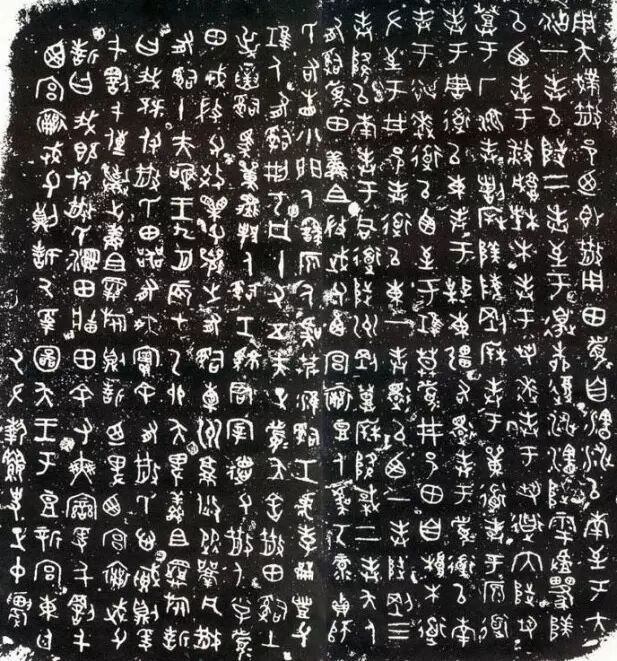 用夨散邑乃即散用田眉自瀗涉以南至于大
沽一封以陟二封至于邊柳復涉瀗陟雩
以西封于城木封于芻逨封于芻道內陟芻
登于厂湶封陵剛封于道封于原道
封于周道以東封于東疆右還封于眉道以南
封于逨道以西至于莫眉井邑田自木道
左至于井邑封道以東一封還以西一封陟剛三
封降以南封于同道陟州剛登降棫二封夨人
有司眉田鮮且微武父西宮襄豆人虞丂彔貞師
氏右眚小門人原人虞淮司工虎孛豐父
人有司丂凡十又五夫正眉夨舍散田司土
司馬人司工君宰德父散人小子眉
田戎微父效父襄之有司橐州凡散
有司十夫唯王九月辰在乙卯夨卑鮮且旅誓
曰我既付散氏田器有爽實余有散氏心賊則爰
千罰千傳棄之鮮且旅則誓乃卑西宮襄武父
誓曰我既付散氏田田余有爽爰千罰千
西宮襄武父則誓厥受圖夨王于豆新宮東廷
厥左執史正中農